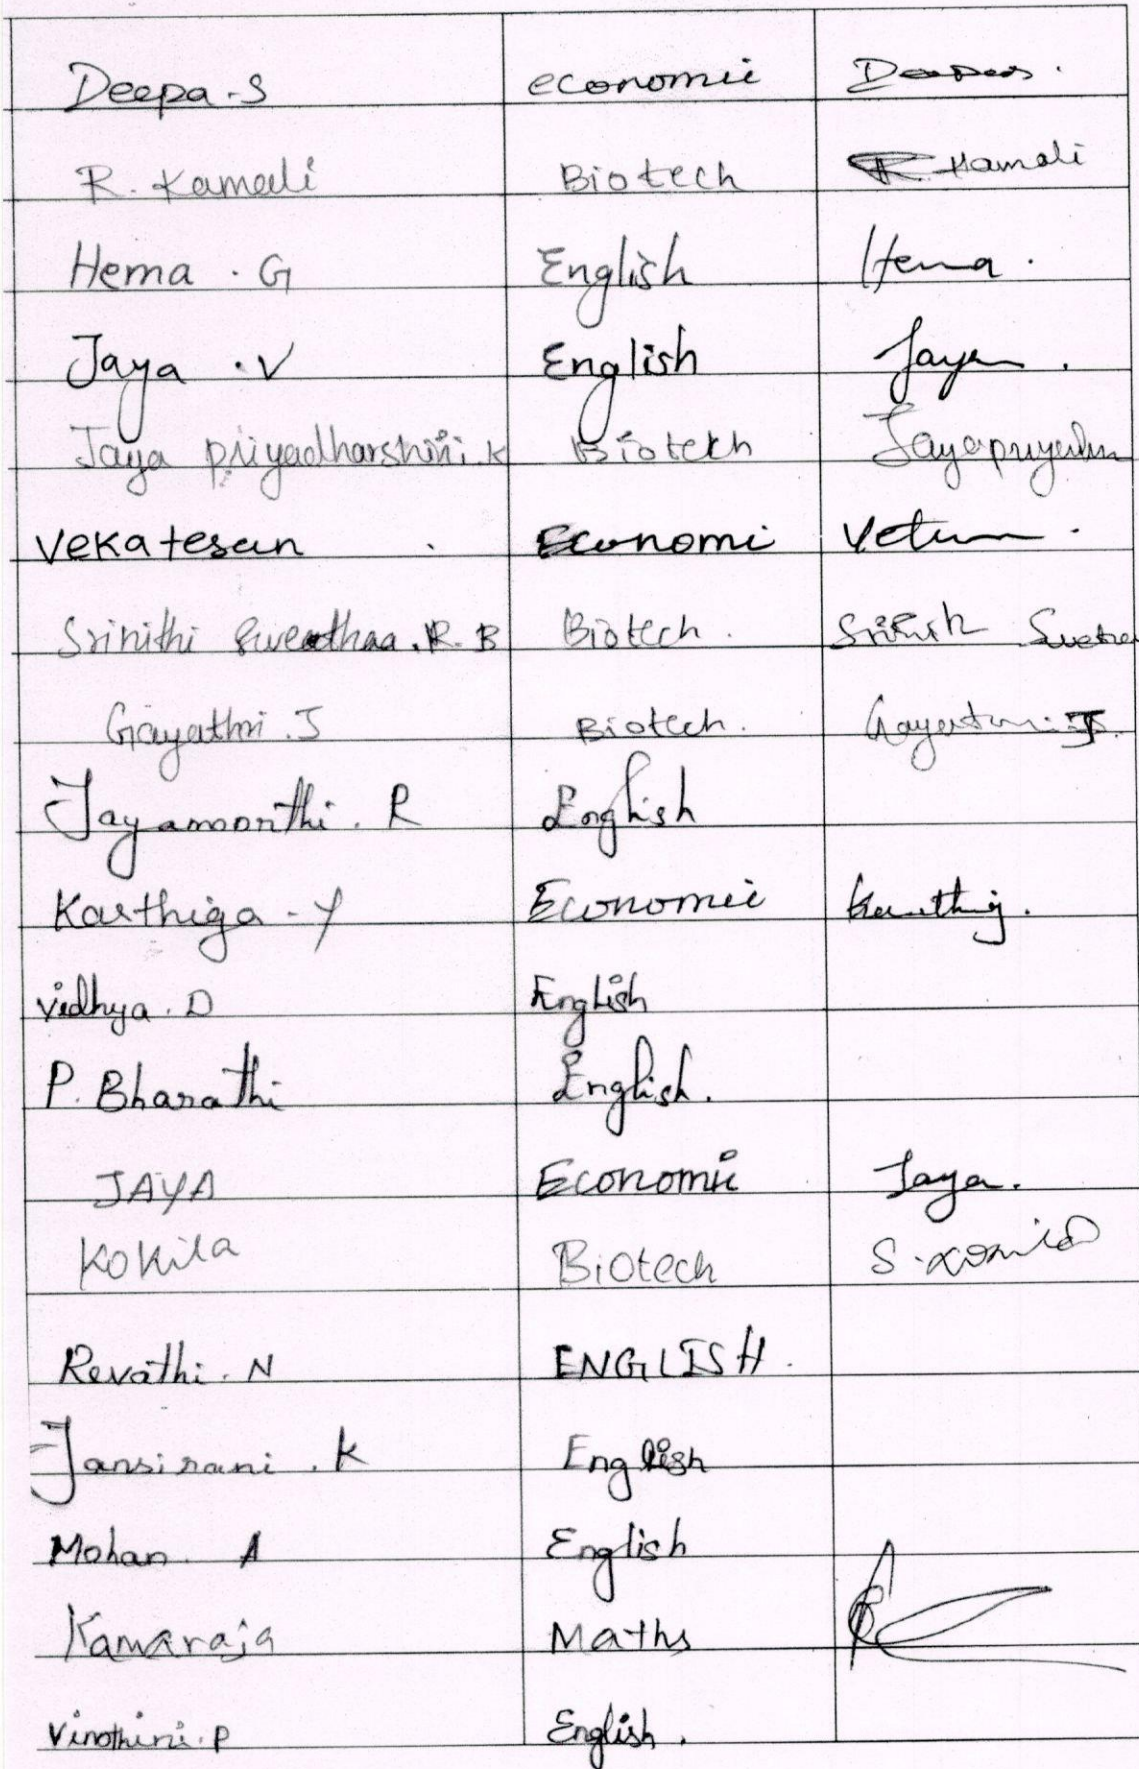 Deepa.S economic Deepas.
R. Kamali Biotech R. Kamali
Hema . G English Hema.
Jaya .V English Jaya.
Jaya priyadharshini.K Biotech
Vekatesan . Economi
Srinithi Swethaa.R.B Biotech.
Gayathri.J Biotech. Gayathri.J.
Jayamoorthi. R English
Karthiga - Y Economic Karthig.
Vidhya. D English
P. Bharathi English.
JAYA Economic Jaya.
Kokila Biotech
Revathi. N ENGLISH.
Jansirani . K English
Mohan. A English
Kamaraja Maths
Vinothini.P English.